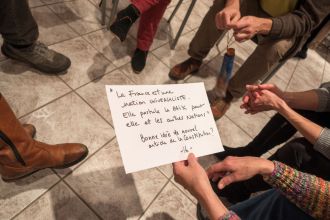 La France est une
Nation universaliste.
Elle postule la Paix pour
elle et les autres Nations.
Bonne idée de nouvel
article de la Constitution ?